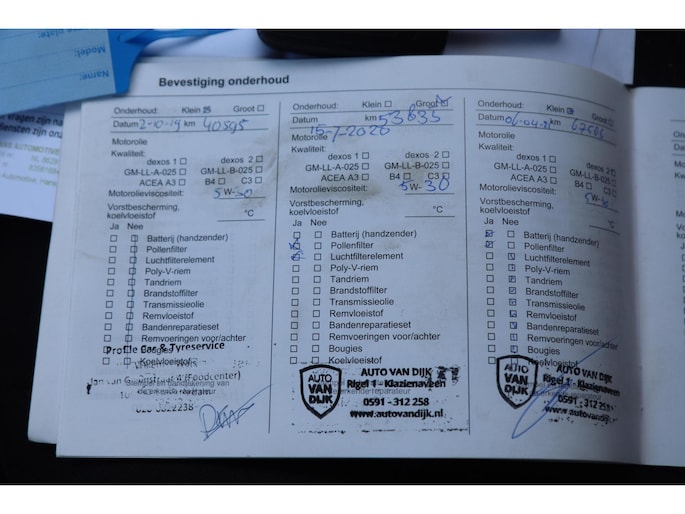 Model:
Name:
Bevestiging onderhoud
Onderhoud: Klein Groot
Datum 2-10-19 km 40895
Motorolie
Kwaliteit:
dexos 1 dexos 2
GM-LL-A-025 GM-LL-B-025
ACEA A3 B4 C3
Motorolieviscositeit: 5W-30
Vorstbescherming, koelvloeistof °C
Ja Nee
Batterij (handzender)
Pollenfilter
Luchtfilterelement
Poly-V-riem
Tandriem
Brandstoffilter
Transmissieolie
Remvloeistof
Bandenreparatieset
Remvoeringen voor/achter
Bougies
Koelvloeistof
Profile Car & Tyreservice
(Foodcenter)
Onderhoud: Klein Groot
Datum 15-7-2020 km 53835
Motorolie
Kwaliteit:
dexos 1 dexos 2
GM-LL-A-025 GM-LL-B-025
ACEA A3 B4 C3
Motorolieviscositeit: 5W-30
Vorstbescherming, koelvloeistof °C
Ja Nee
Batterij (handzender)
Pollenfilter
Luchtfilterelement
Poly-V-riem
Tandriem
Brandstoffilter
Transmissieolie
Remvloeistof
Bandenreparatieset
Remvoeringen voor/achter
Bougies
Koelvloeistof
AUTO VAN DIJK
AUTO VAN DIJK
Rigel 1 - Klazienaveen
0591 - 312 258
www.autovandijk.nl
Onderhoud: Klein Groot
Datum km
Motorolie
Kwaliteit:
dexos 1 dexos 2
GM-LL-A-025 GM-LL-B-025
ACEA A3 B4 C3
Motorolieviscositeit: 5W-
Vorstbescherming, koelvloeistof °C
Ja Nee
Batterij (handzender)
Pollenfilter
Luchtfilterelement
Poly-V-riem
Tandriem
Brandstoffilter
Transmissieolie
Remvloeistof
Bandenreparatieset
Remvoeringen voor/achter
Bougies
Koelvloeistof
AUTO VAN DIJK
AUTO VAN DIJK
Rigel 1 - Klazienaveen
0591 - 312 258
www.autovandijk.nl